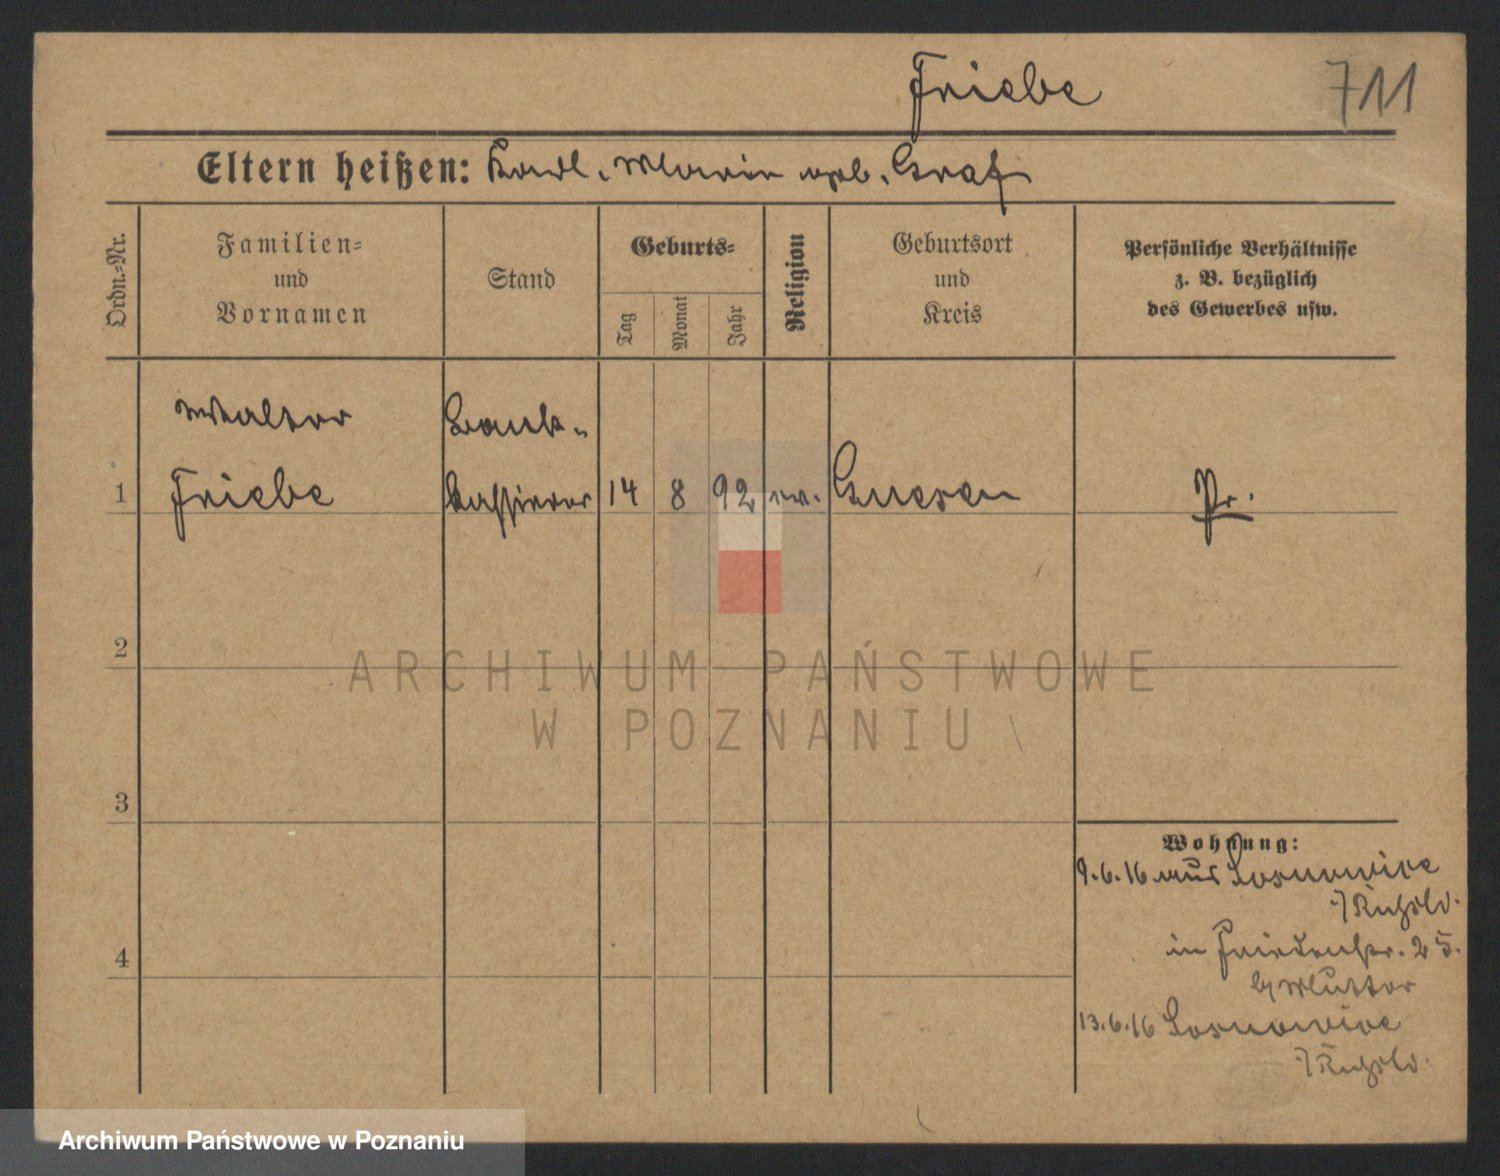 Friebe
711
Eltern heißen: Karl, Marie geb. Graf
Ordn.-Nr.
Familien-
und
Vornamen
Stand
Geburts-
Tag
Monat
Jahr
Religion
Geburtsort
und
Kreis
Persönliche Verhältnisse
z. B. bezüglich
des Gewerbes usw.
Walter
Friebe
Bank-
kassierer
1
14
8
92
ev.
Gnesen
Pr.
2
3
4
Wohnung:
9.6.16 aus Sosnowice
in Friedenstr. 25.
b/ Mutter
13.6.16 Sosnowice
ARCHIWUM PAŃSTWOWE
W POZNANIU
Archiwum Państwowe w Poznaniu